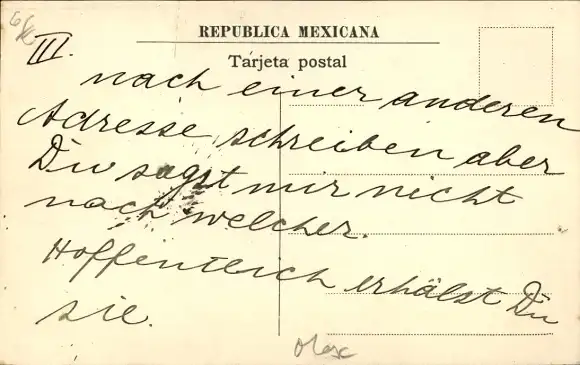 REPUBLICA MEXICANA
Tarjeta postal
III.
nach einer anderen
Adresse schreiben aber
Du sagst mir nicht
nach welcher.
Hoffentlich erhälst Du
sie.